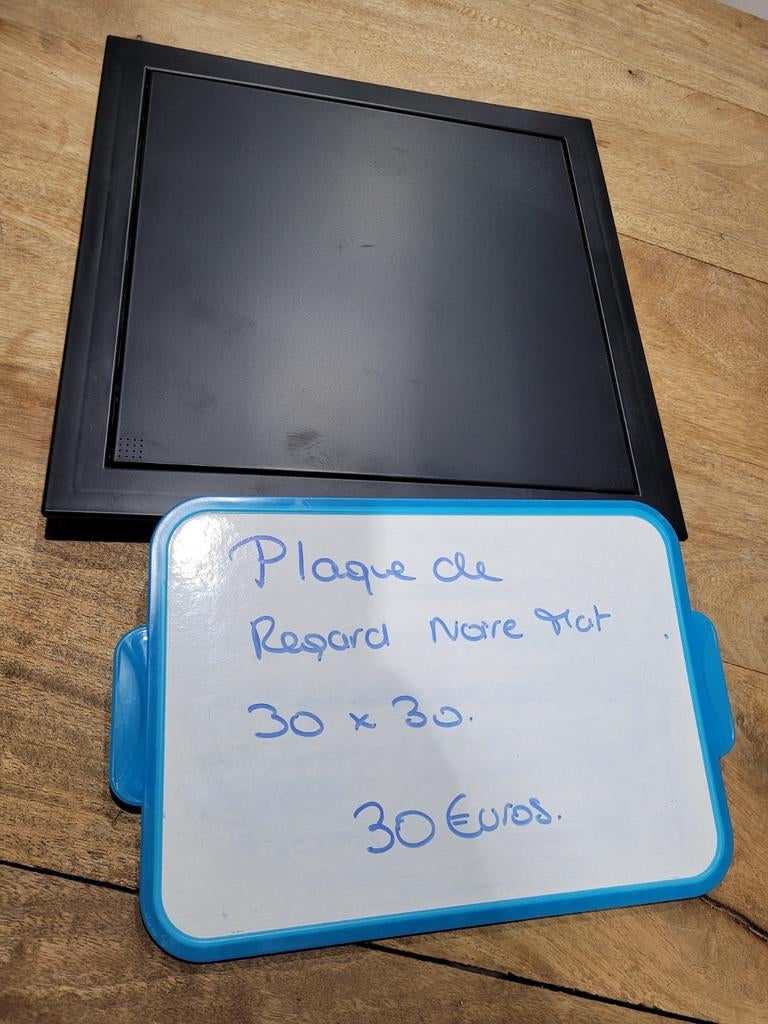 Plaque de
Regard Noire Mat
30 x 30.
30 Euros.